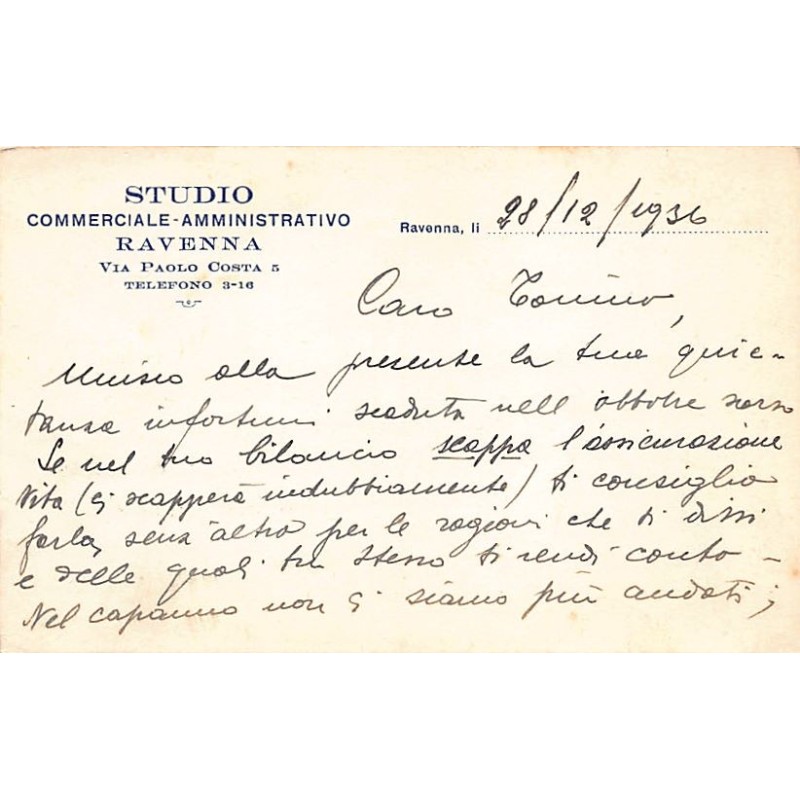 STUDIO
COMMERCIALE-AMMINISTRATIVO
RAVENNA
VIA PAOLO COSTA 5
TELEFONO 3-16
Ravenna, li 28/12/1936
Caro Tonino,
Unisco alla presente la tua quie-
tanza infortuni scaduta nell'ottobre scorso
Se nel tuo bilancio scappa l'assicurazione
Vita (ci scapperà indubbiamente) ti consiglio
farla, senz'altro per le ragioni che ti dissi
e delle quali tu stesso ti rendi conto -
Nel capanno non ci siamo più andati;